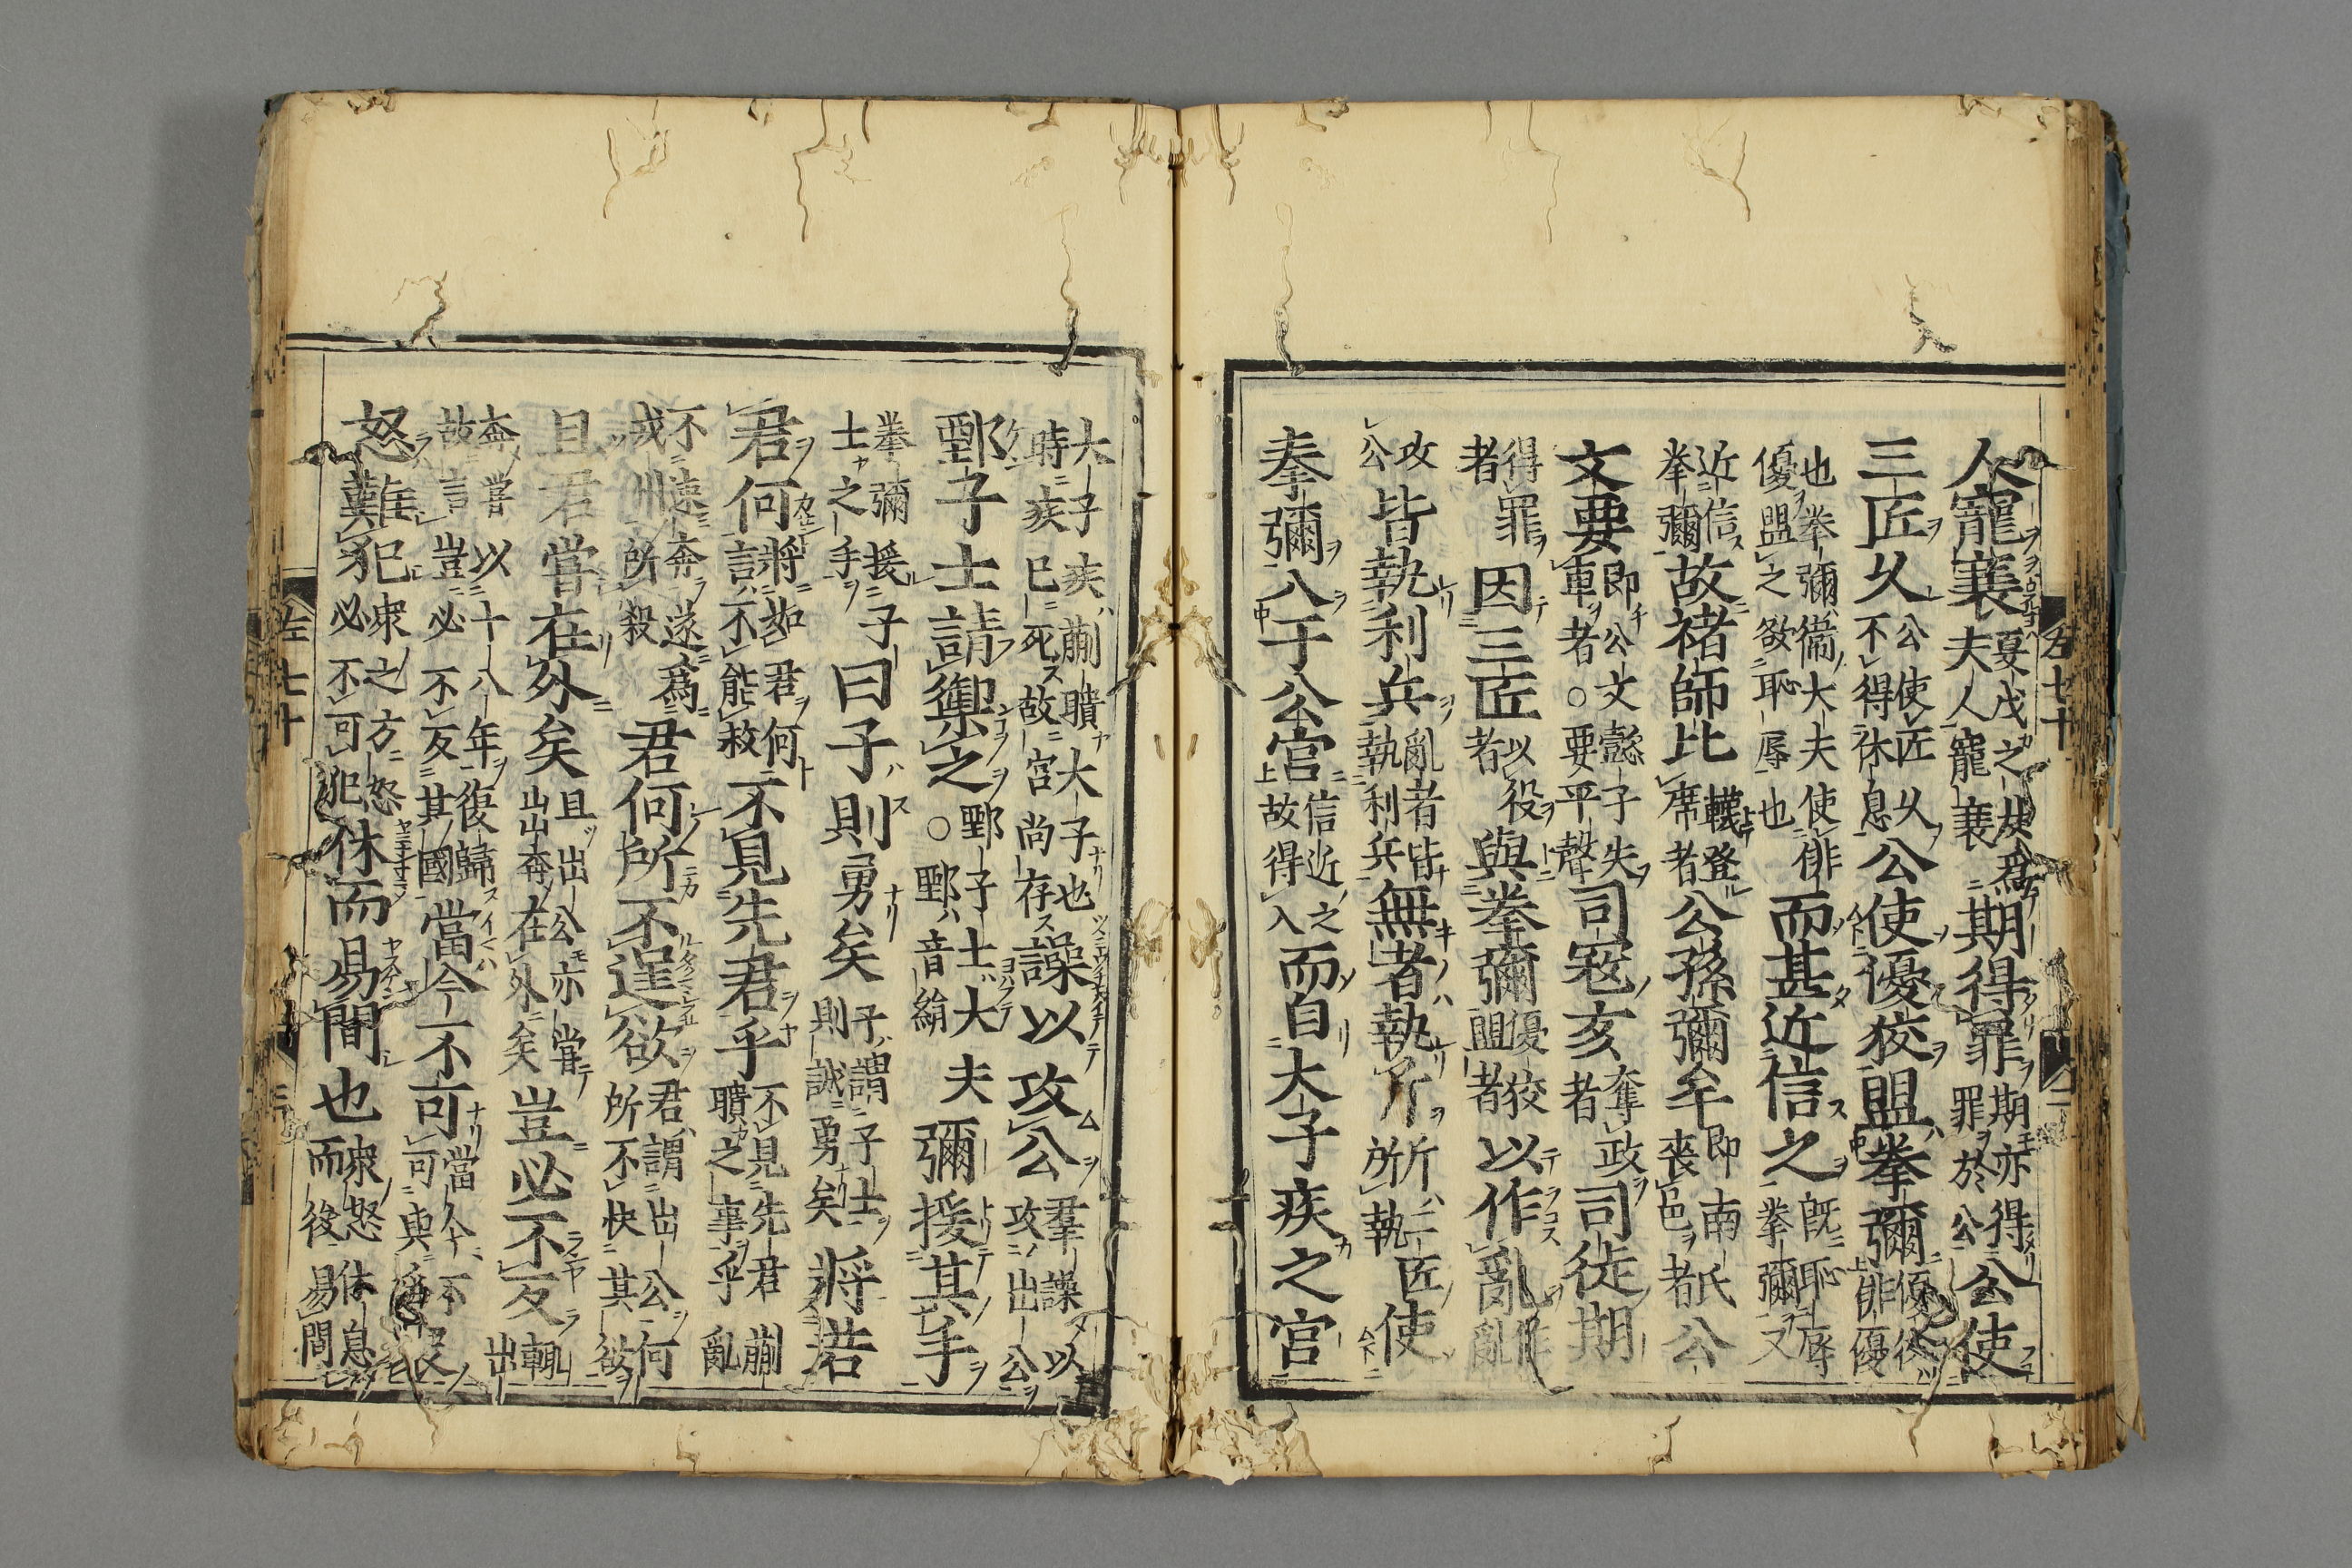 人寵襄夏戊之女爲夫人寵襄期得罪期亦得罪於公公使
三匠久公使匠久不得休息公使優狡盟拳彌優狡俳優
也拳彌衞大夫使俳優盟之欲恥辱也而甚近信之既恥辱拳彌又
近信拳彌故褚師比韈登席者公孫彌牟即南氏喪邑者公
文要即公文懿子失車者○要平聲司寇亥奪政者司徒期
得罪者因三匠以役者與拳彌優狡盟者以作亂作亂
攻公皆執利兵亂者皆執利兵無者執斤斤二匠所執使
拳彌入于公宮信近之故得入而自大子疾之宮
大子疾蒯聵大子也時疾已死故宮尚存譟以攻公羣譟以攻出公
鄄子士請禦之鄄子士大夫○鄄音絹彌援其手
拳彌援子士之手曰子則勇矣子謂子士則誠勇矣將若
君何將如君何言不能救不見先君乎不見先君蒯聵之事乎亂
不速奔遂爲戎州所殺君何所不逞欲君謂出公何所不快其欲
且君嘗在外矣且出公亦嘗出奔在外矣豈必不反輒出
奔嘗以十八年復歸故言豈必不反其國當今不可當今不可與
怒難犯衆之方怒必不可犯休而易間也衆怒休息而後易間
左 七十
左 七十